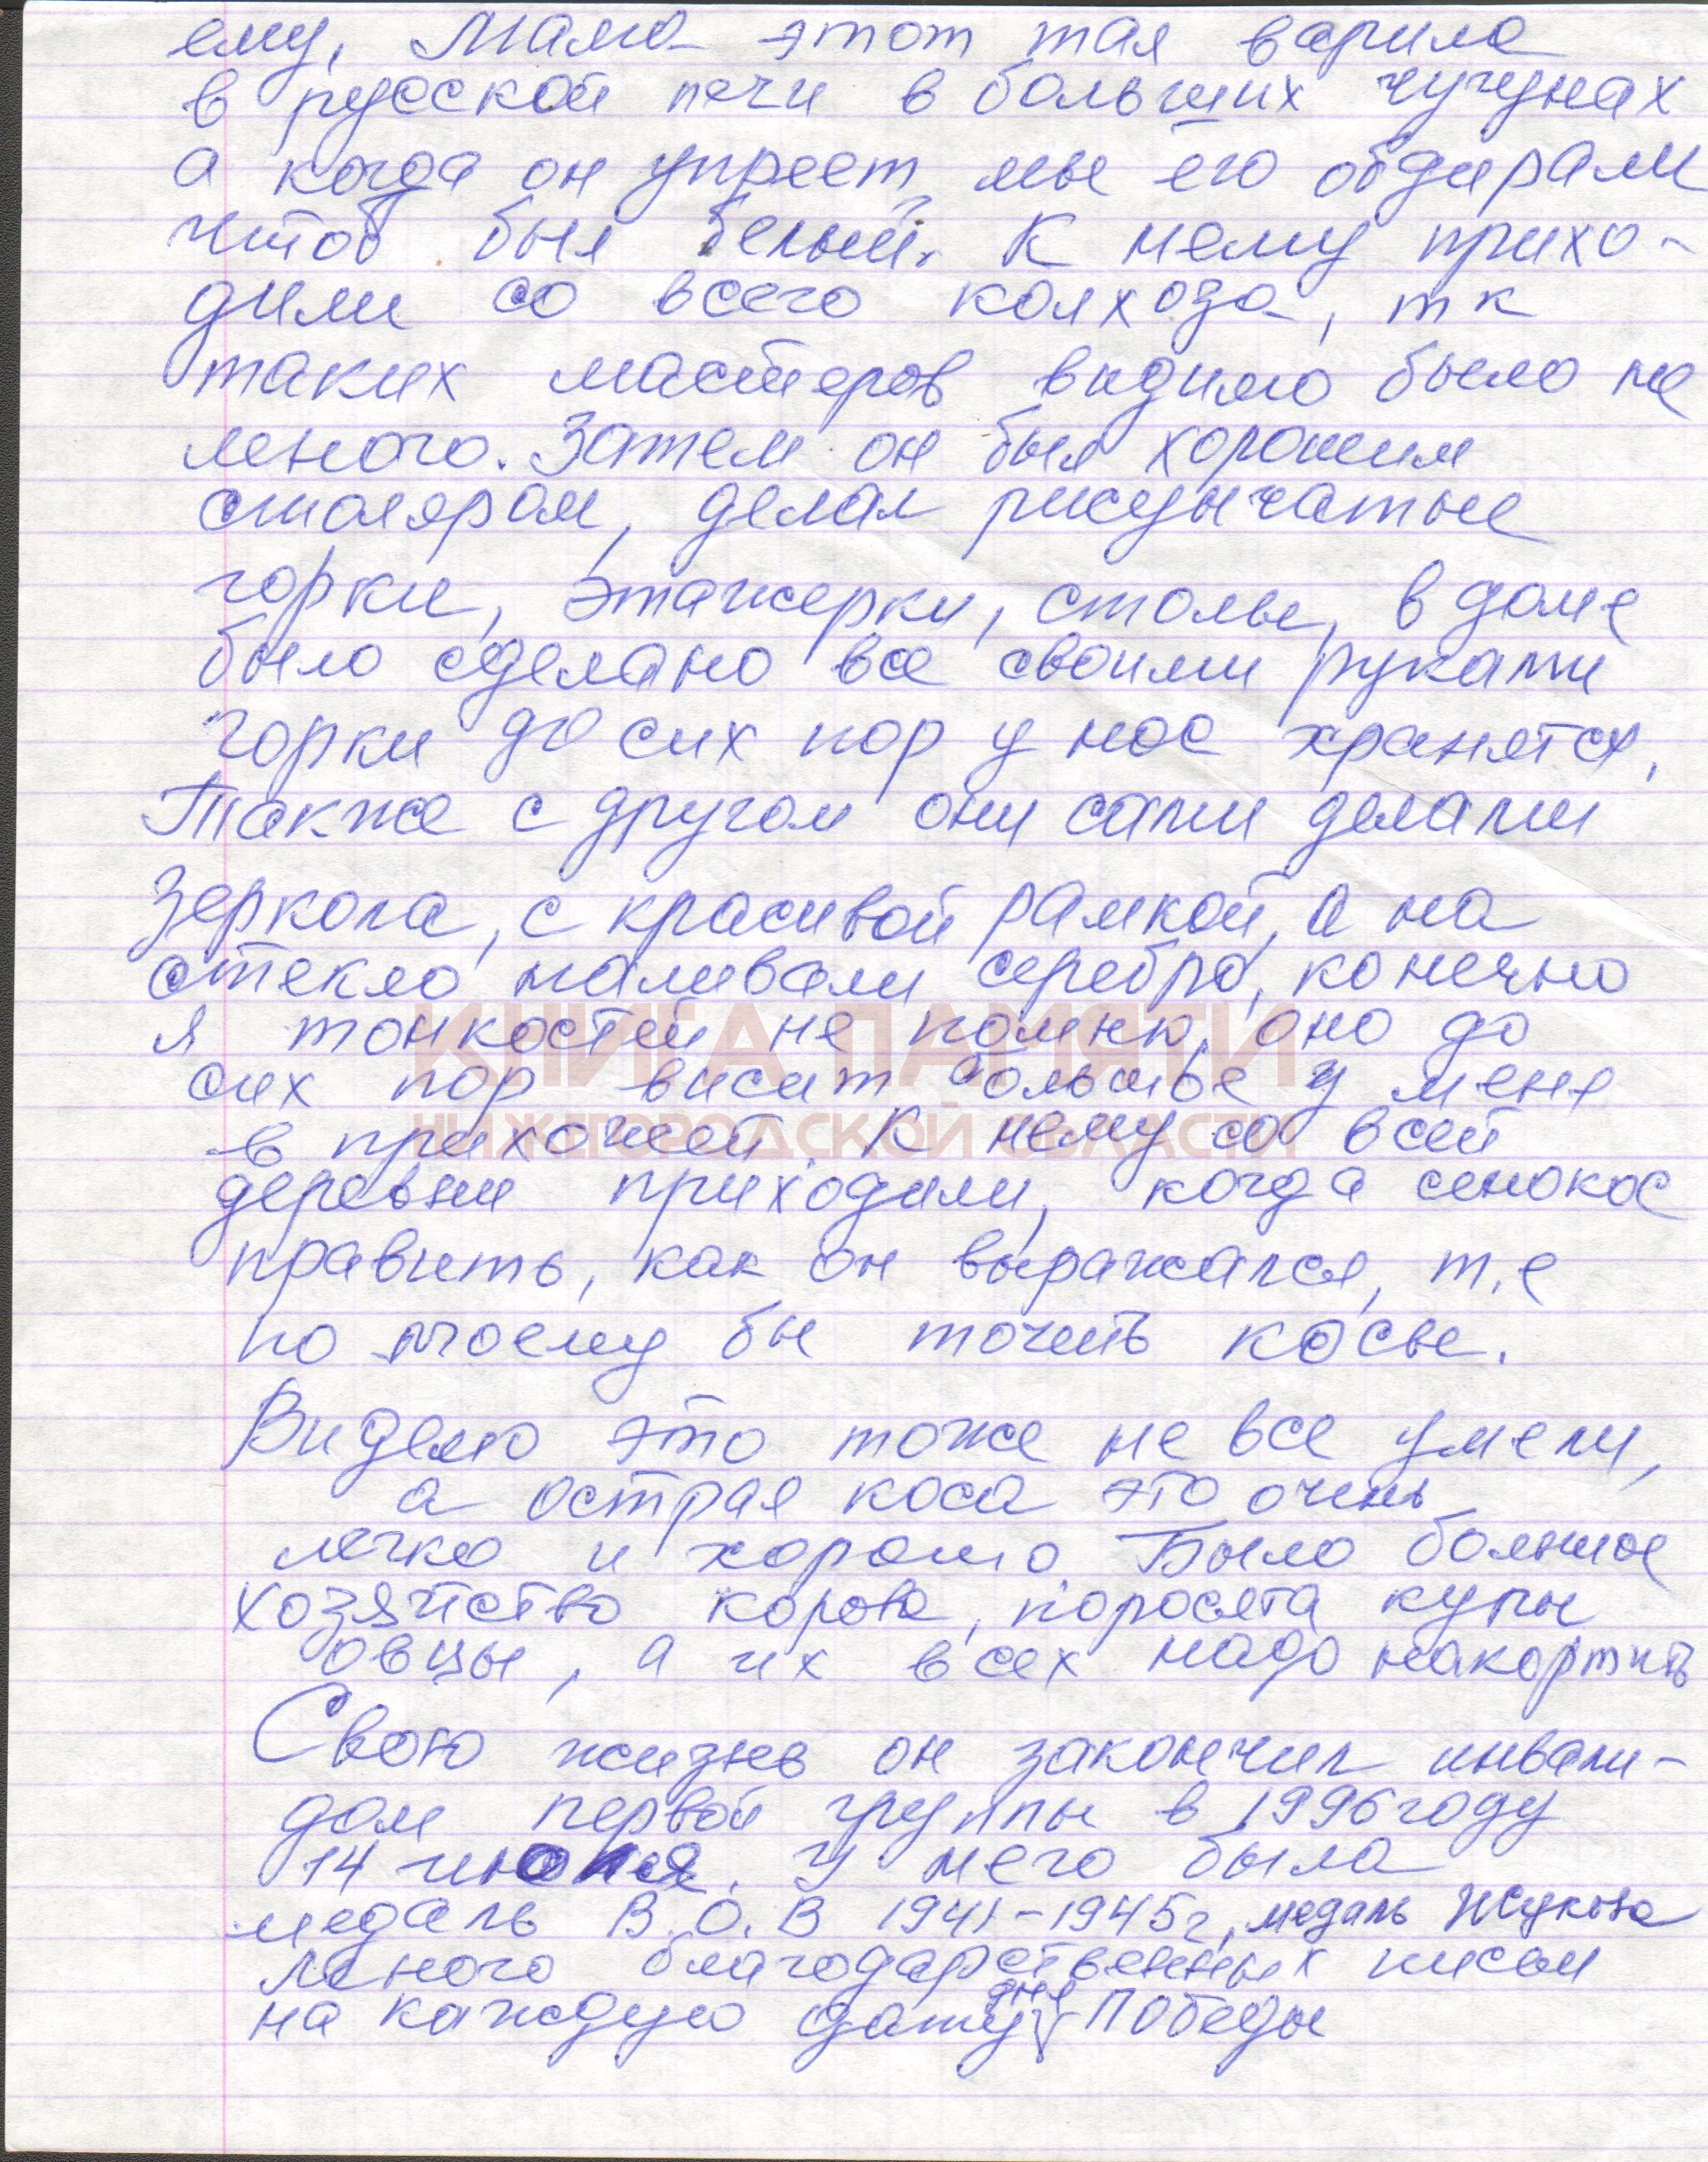 ему, Мама этот тал варила
в русской печи в больших чугунах
а когда он упреет, мы его обдирали
чтоб был белый. К нему прихо-
дили со всего колхоза, т к
таких мастеров видимо было не
много. Затем он был хорошим
столяром, делал рисунчатые
горки, этажерки, столы, в доме
было сделано все своими руками
горки до сих пор у нас хранятся,
Также с другом они сами делали
зеркала, с красивой рамкой, а на
стекло наливали серебро, конечно
я тонкостей не помню, оно до
сих пор висит большое у меня
в прихожей. К нему со всей
деревни приходили, когда сенокос
править, как он выражался, т.е
по моему бы точить косы.
Видемо это тоже не все умели,
а острая коса это очень
легко и хорошо. Было большое
хозяйство корова, поросята куры
овцы, а их всех надо накормить
Свою жизнь он закончил инвали-
дом первой группы в 1996 году
14 июля. У него была
медаль В.О.В 1941-1945г, медаль Жукова
много благодарственных писем
на каждую дату дня Победы
КНИГА ПАМЯТИ
НИЖЕГОРОДСКОЙ ОБЛАСТИ